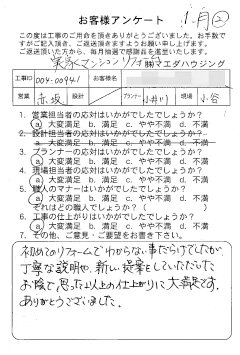 お客様アンケート
この度は工事のご用命を頂きありがとうございました。お手数ですがご記入頂き、ご返送頂きますようお願い申し上げます。
ご返送頂いた方から、毎月抽選で感謝品を進呈いたします。
㈱マエダハウジング
工事ID 004-00941 お客様名
営業 赤坂 設計 プランナー 小井川 現場 小谷
1. 営業担当者の応対はいかがでしたでしょうか?
a 大変満足 b. 満足 c. やや不満 d. 不満
2. 設計担当者の応対はいかがでしたでしょうか?
a. 大変満足 b. 満足 c. やや不満 d. 不満
3. プランナーの応対はいかがでしたでしょうか?
a 大変満足 b. 満足 c. やや不満 d. 不満
4. 現場担当者の応対はいかがでしたでしょうか?
a 大変満足 b. 満足 c. やや不満 d. 不満
5. 職人のマナーはいかがでしたでしょうか?
a 大変満足 b. 満足 c. やや不満 d. 不満
それはどの職人でしょうか( )
6. 工事の仕上がりはいかがでしたでしょうか?
a 大変満足 b. 満足 c. やや不満 d. 不満
7. その他、ご意見・ご要望をお書き下さい。
初めてのリフォームでわからない事だらけでしたが、
丁寧な説明や、新しい提案をしていただいた
お陰で、思った以上の仕上がりに大満足です。
ありがとうございました。